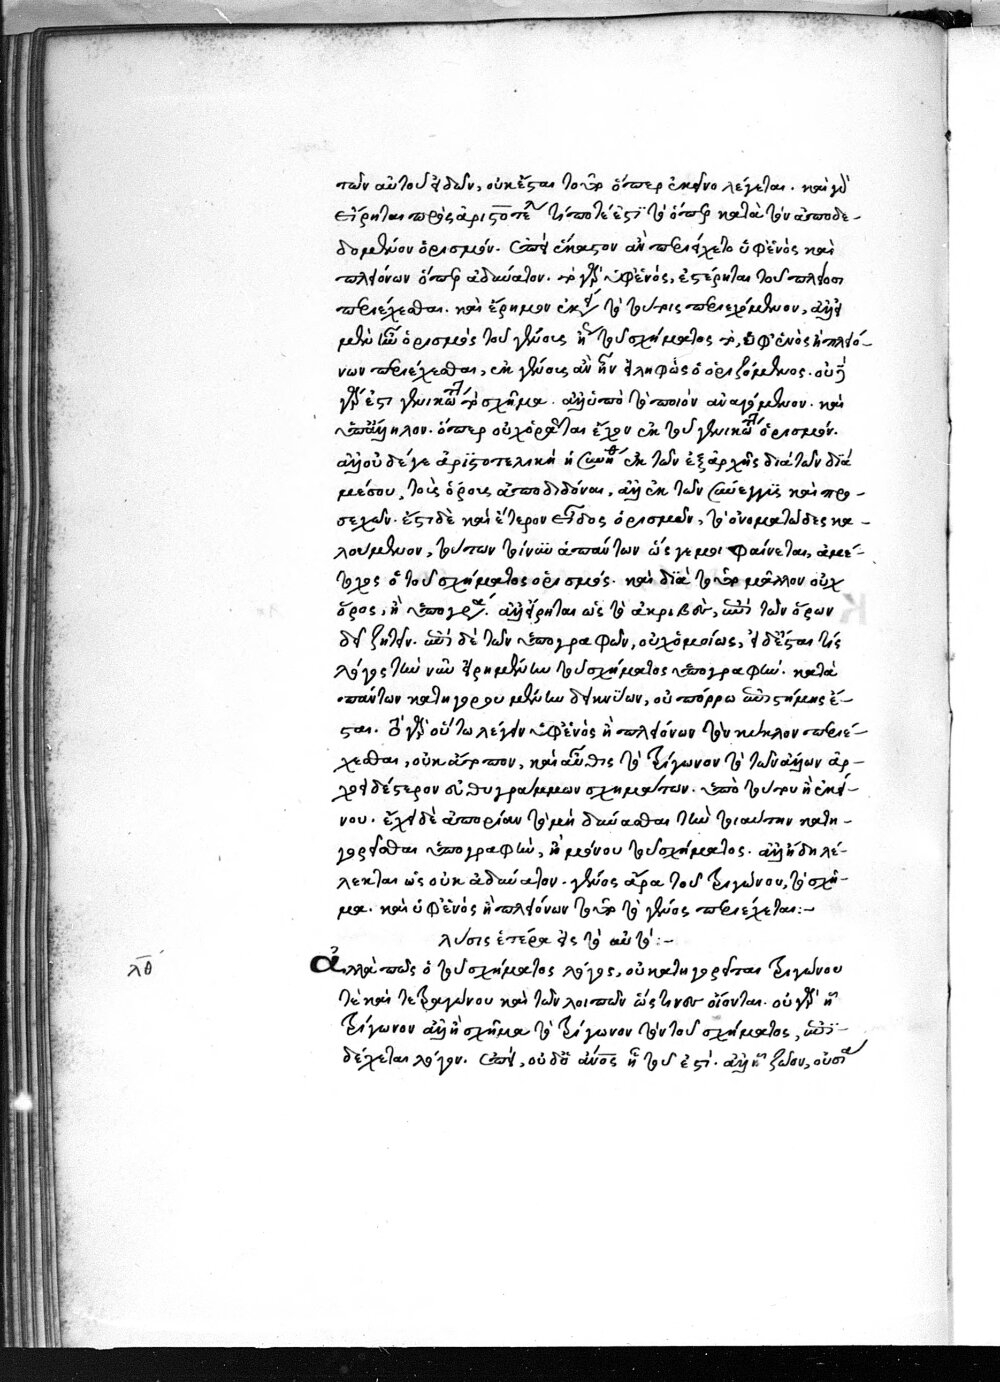 τῶν αὐτοῦ εἰδῶν, οὐκ ἔσται τοῦθ' ὅπερ ἐκεῖνο λέγεται. καὶ γὰρ
εἴρηται πρὸς ἀριστοτέλους τί ποτέ ἐστι τὸ ὅπερ κατὰ τὸν ἀποδε-
δομένον ὁρισμόν. ἐπεὶ ἕκαστον ἂν περιείχετο ὑφ' ἑνὸς καὶ
πλειόνων ὅπερ ἀδύνατον. τὸ γὰρ ὑφ' ἑνὸς, ἐστέρηται τοῦ πλείοσι
περιέχεσθαι. καὶ ἔρημον ἐκεῖ τὸ τούτοις περιεχόμενον, ἀλλ' εἰ
μὲν ἦν ὁρισμὸς τοῦ γένους ἢ τοῦ σχήματος τὸ, ὑφ' ἑνὸς ἢ πλειό-
νων περιέχεσθαι, ἐκ γένους ἂν ἦν εἰληφὼς ὁ ὁριζόμενος. οὐ
γάρ ἐστι γενικώτατον τὸ σχῆμα. ἀλλ' ὑπὸ τὸ ποιὸν ἀναγόμενον. καὶ
ὑπάλληλον. ὅπερ οὐχ ὁρᾶται ἔχον ἐκ τοῦ γενικωτάτου ὁρισμόν.
ἀλλ' οὐδέ γε ἀριστοτελικὴ ἡ συνήθεια ἐκ τῶν ἐξαρχῆς διὰ τῶν διὰ
μέσου, τοὺς ὅρους ἀποδιδόναι, ἀλλ' ἐκ τῶν σύνεγγυς καὶ προ-
σεχῶν. ἔστι δὲ καὶ ἕτερον εἶδος ὁρισμῶν, τὸ ὀνοματῶδες κα-
λούμενον, τούτων τοίνυν ἁπάντων ὥς γέ μοι φαίνεται, ἀμέ-
τοχος ὁ τοῦ σχήματος ὁρισμός. καὶ διὰ τοῦτο μᾶλλον οὐχ
ὅρος, ἢ ὑπογραφή. ἀλλ' εἴρηται ὡς τὸ ἀκριβὲς, ἐπὶ τῶν ὅρων
δεῖ ζητεῖν. ἐπὶ δὲ τῶν ὑπογραφῶν, οὐχ ὁμοίως, εἰ δέξεται τις
λόγος τὴν νῦν εἰρημένην τοῦ σχήματος ὑπογραφὴν. κατὰ
πάντων κατηγορουμένην δεικνύων, οὐ πόρρω ἐπιστήμης ἔ-
σται. τὸ γὰρ οὕτω λέγειν ὑφ' ἑνὸς ἢ πλειόνων τὸν κύκλον περιέ-
χεσθαι, οὐκ ἄτοπον, καὶ αὖθις τὸ τρίγωνον τὸ τῶν ἄλλων ἀρ-
χοειδέστερον εὐθυγράμμων σχημάτων. ὑπὸ τούτου ἢ ἐκεί-
νου. ἔχει δὲ ἀπορίαν τὸ μὴ δύνασθαι τὴν τοιαύτην κατη-
γορεῖσθαι ὑπογραφὴν, ἢ μόνου τοῦ σχήματος. ἀλλ' ἤδη λέ-
λεκται ὡς οὐκ ἀδύνατον. γένος ἄρα τοῦ τριγώνου, τὸ σχῆ-
μα. καὶ ὑφ' ἑνὸς ἢ πλειόνων τοῦτο τὸ γένος περιέχεται:-
λύσις ἑτέρα εἰς τὸ αὐτό:-
λθ´ Ἀλλὰ πῶς ὁ τοῦ σχήματος λόγος, οὐ κατηγορεῖται τριγώνου
τὲ καὶ τετραγώνου καὶ τῶν λοιπῶν ὥς τινες οἴονται. οὐ γὰρ ᾗ
τρίγωνον ἀλλ' ᾗ σχῆμα τὸ τρίγωνον τὸν τοῦ σχήματος, ἐπι-
δέχεται λόγον. ἐπεὶ, οὐδ' ὁ ἄνθρωπος ᾗ τοῦτό ἐστι. ἀλλ' ᾗ ζῶον, οὐσία